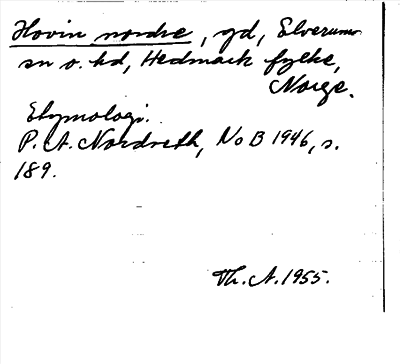 Hovin nordre, gd, Elverums
sn o. hd, Hedmark fylke,
Norge.
Etymologi.
P. A. Nordseth, NoB 1946, s.
189.
Th. A. 1955.